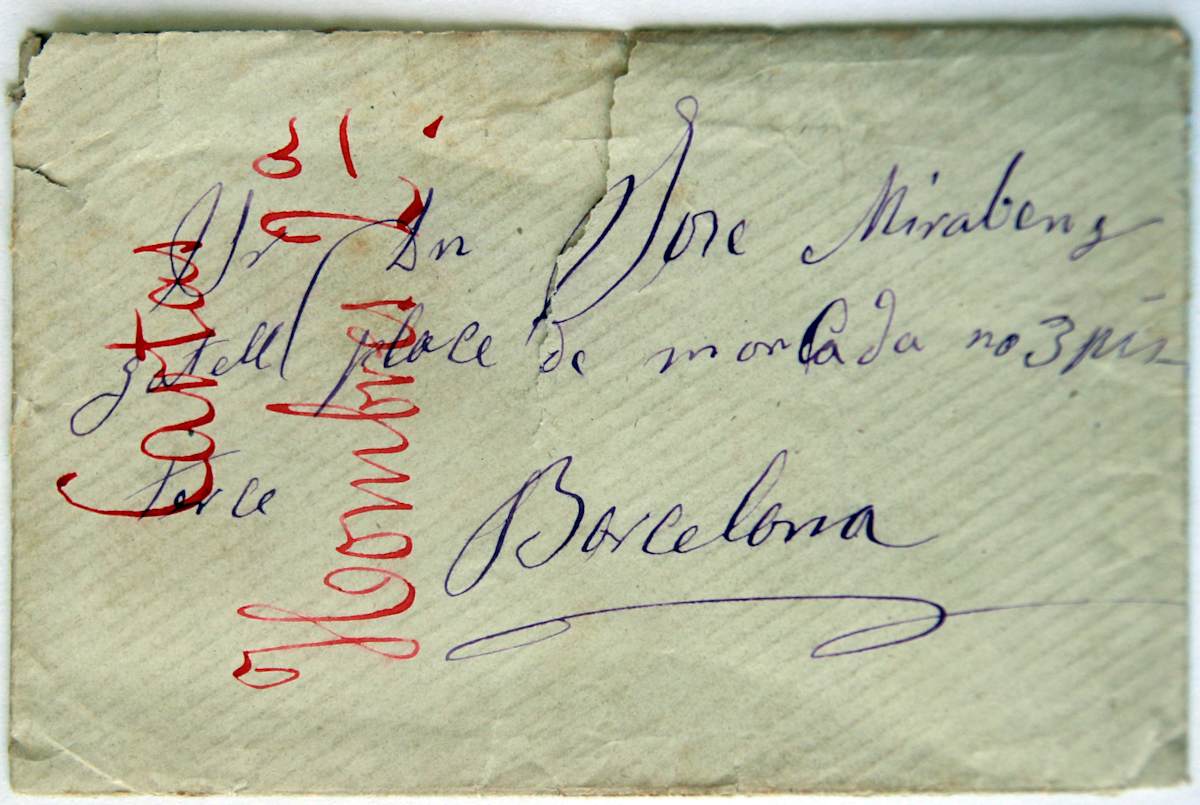 Sr Dn Jose Mirabeny
gatell place de moncada no 3 pis
terce
Barcelona
Cartas
a
Hombres